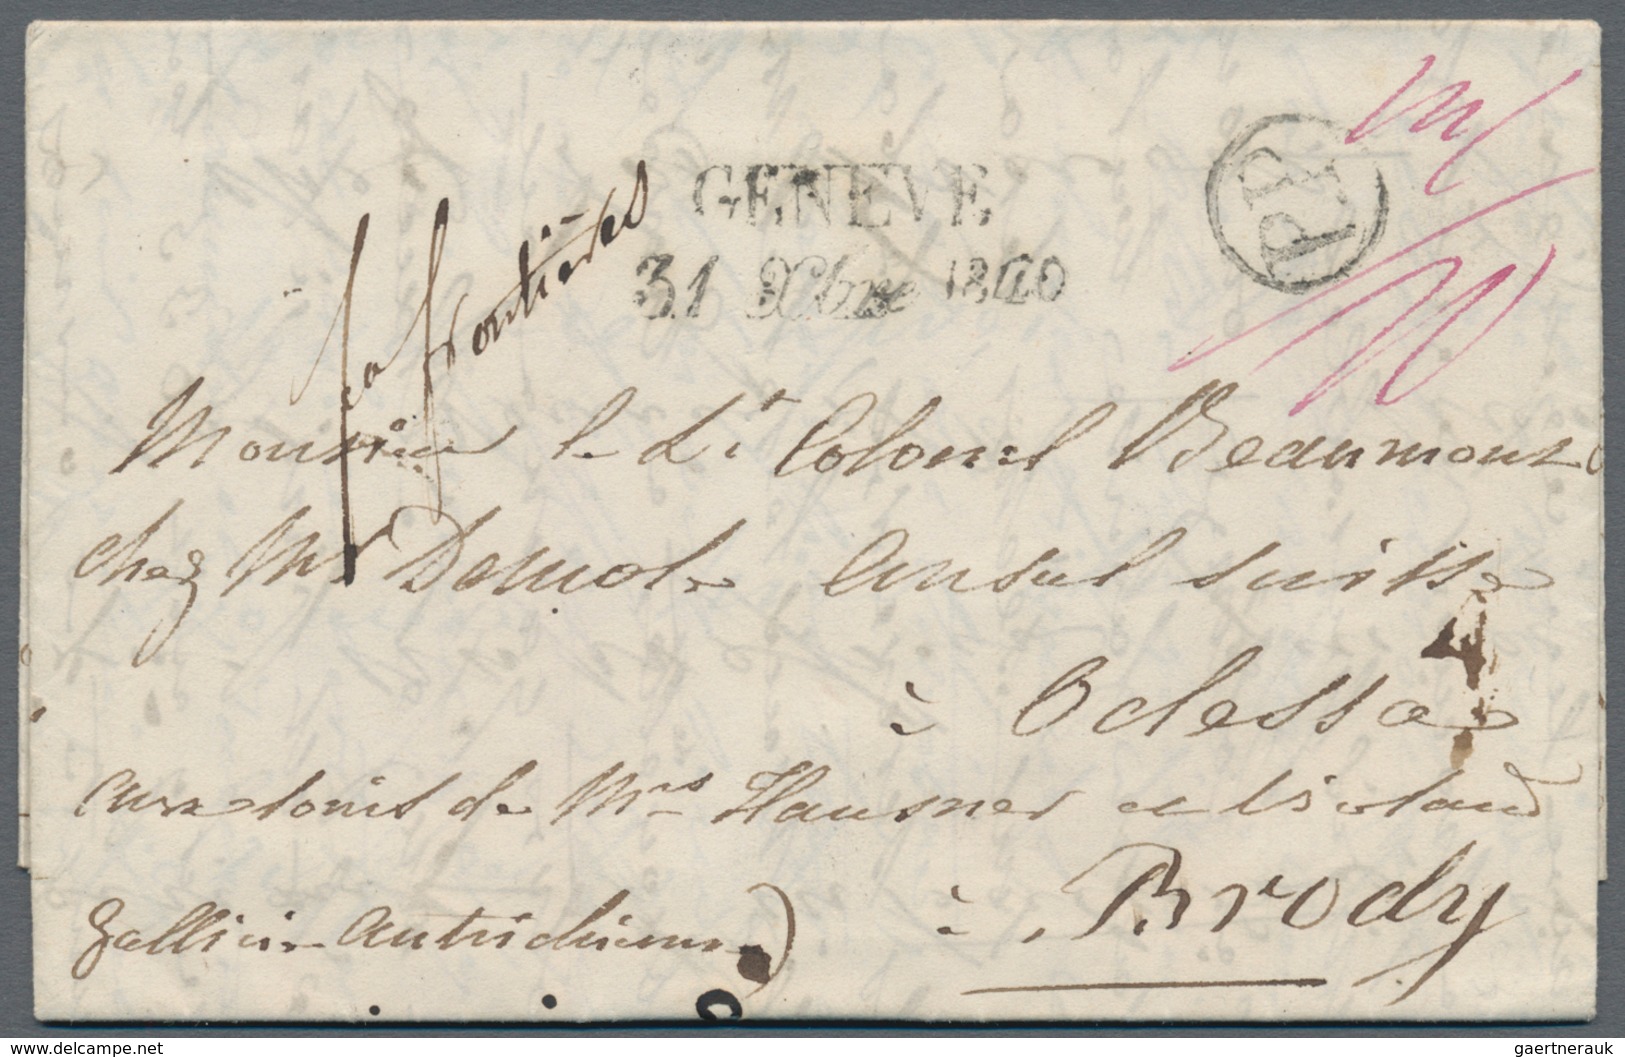 GENEVE
PP
31 Xbre 1840
frontières
Monsieur le Lt Colonel Beaumont
chez Mr Demole Consul suisse
à Odessa
aux soins de Mrs Hausner et Violand
à Brody
Gallicie autrichienne)
www.delcampe.net
gaertnerauk